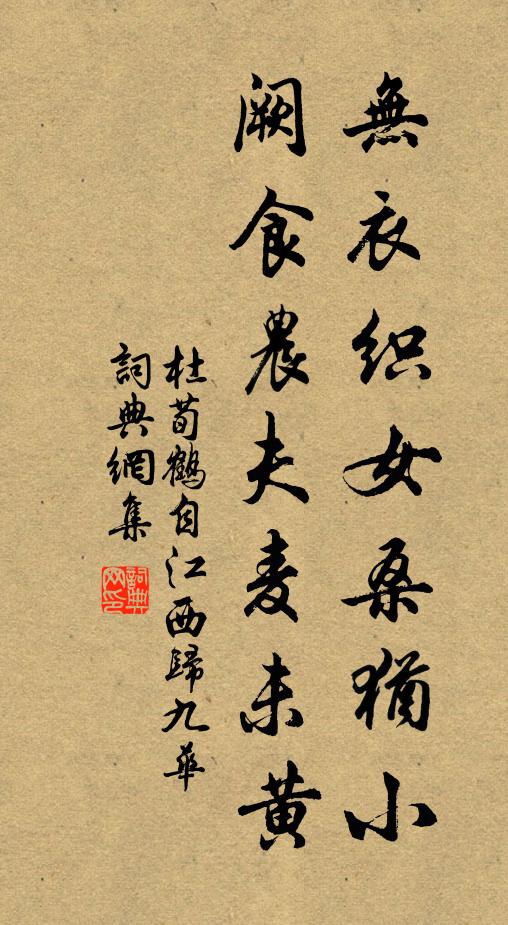 無衣織女桑猶小
闕食農夫麦未黄
杜荀鶴自江西歸九華
詞典網集
詞典
网印